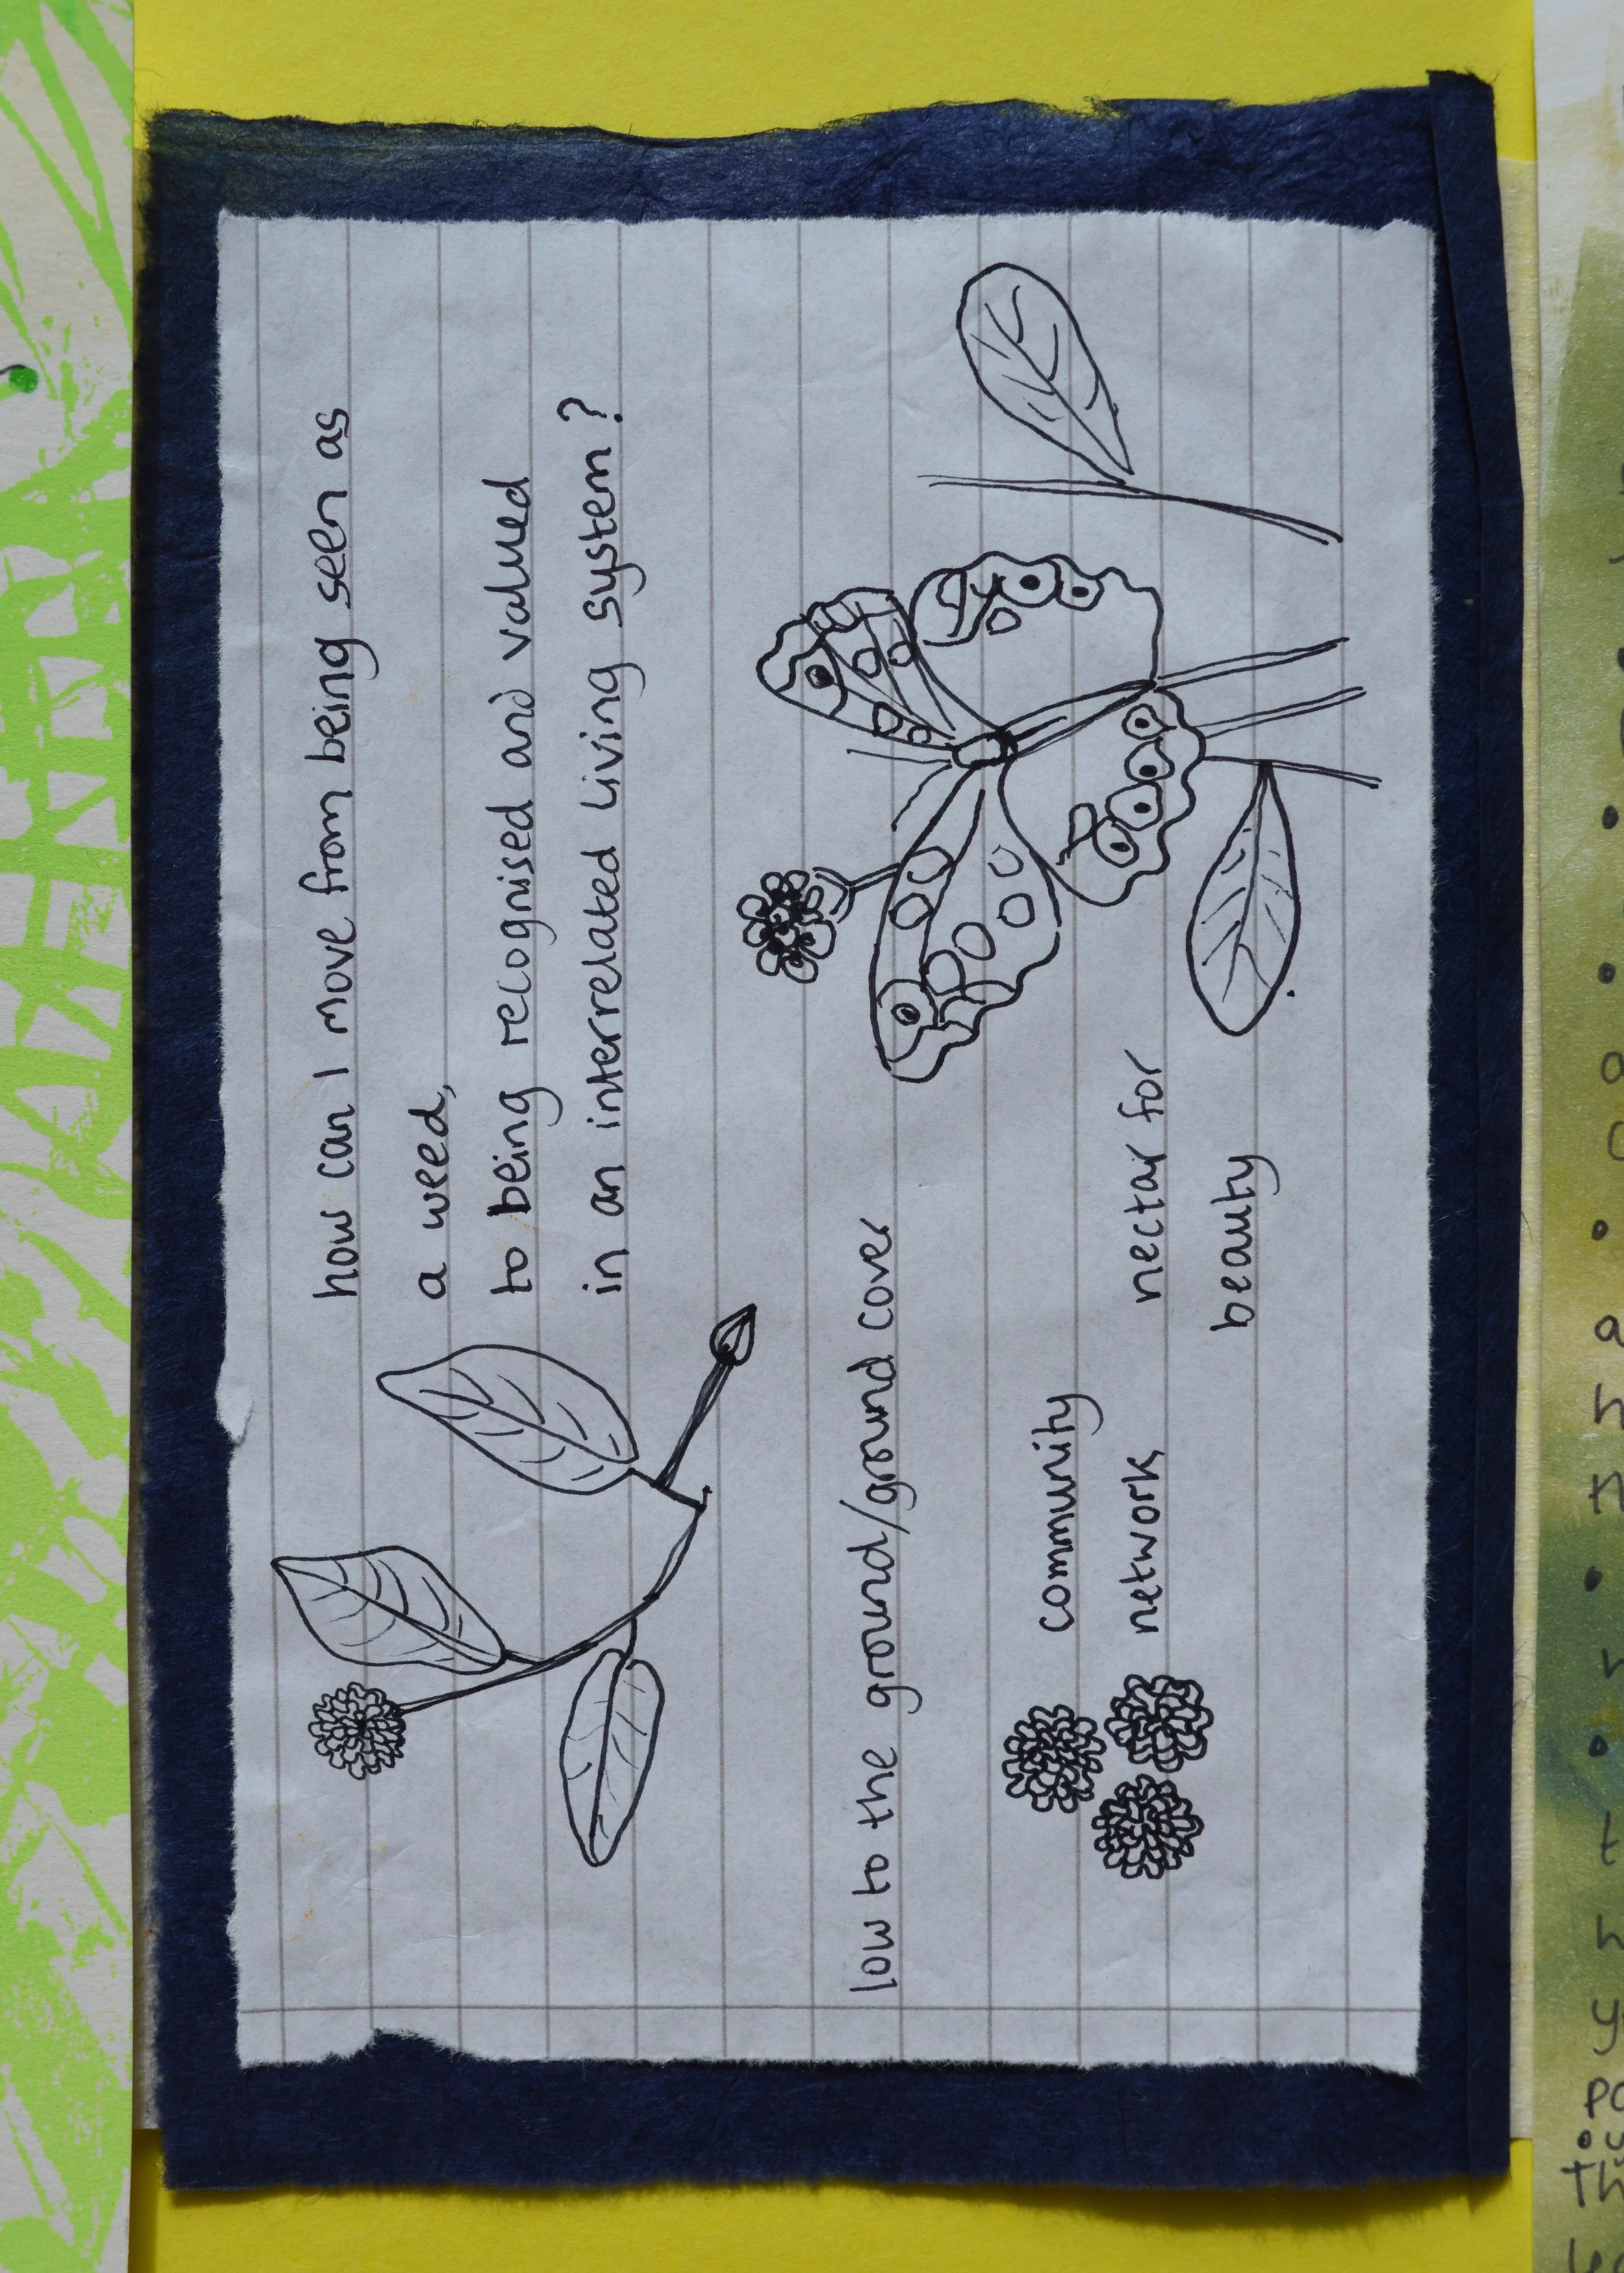 how can I move from being seen as
a weed,
to being recognised and valued
in an interrelated living system?
low to the ground/ground cover
community
network
nectar for
beauty